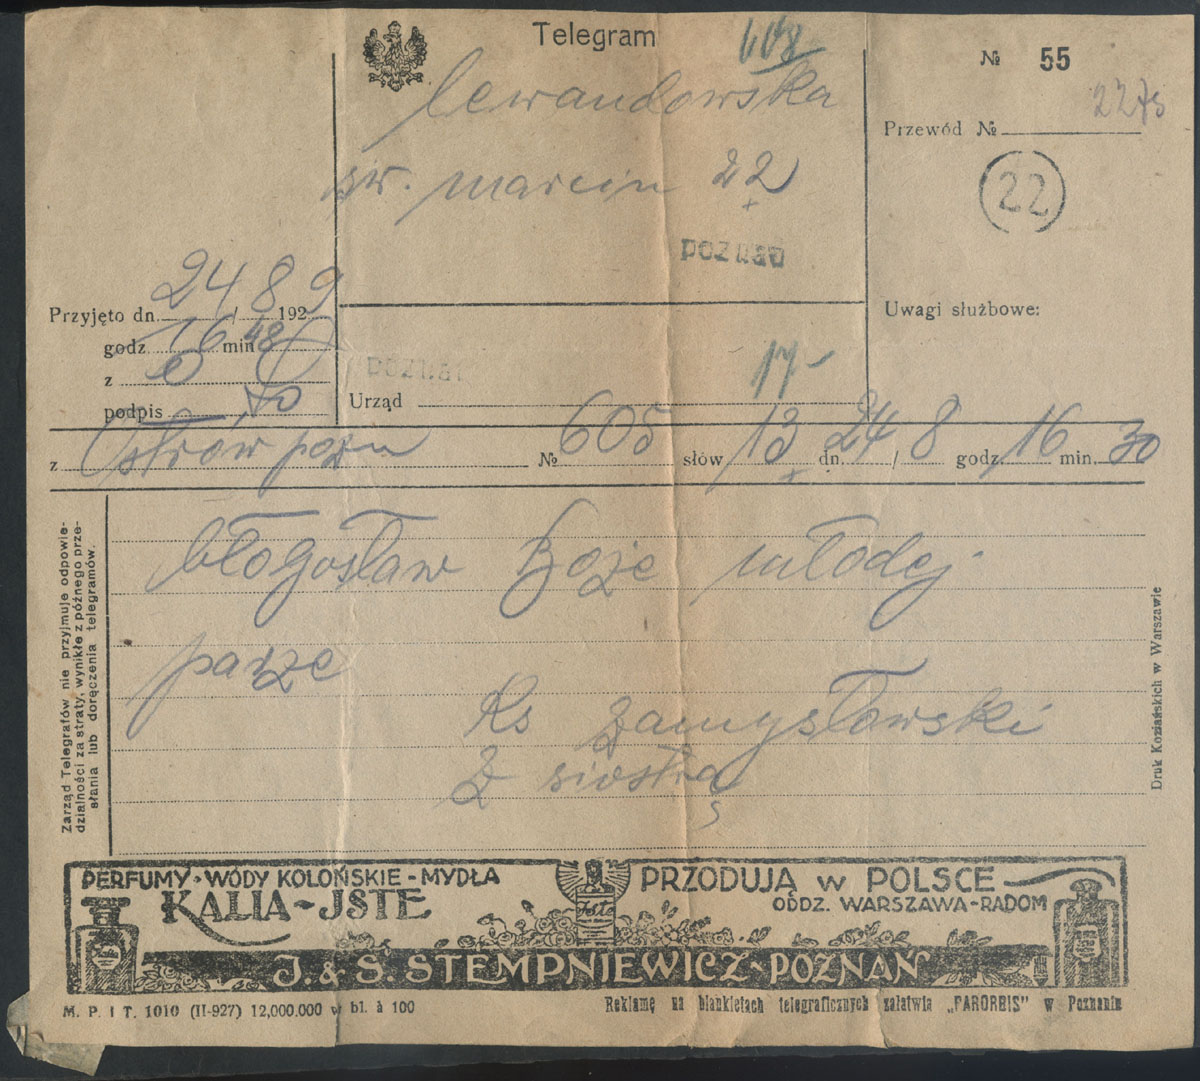 Telegram
608
№ 55
lewandowska
2275
Przewód №
św. marcin 22
22
POZNAŃ
Przyjęto dn. 24/8 1929
Uwagi służbowe:
godz. 16 min 48
z
podpis
POZNAŃ
17-
Urząd
z Ostrów pozn № 605 słów 13 dn. 24/8 godz. 16 min. 30
Zarząd Telegrafów nie przyjmuje odpowie-
dzialności za straty, wynikłe z późnego prze-
słania lub doręczenia telegramów.
błogosław Boże młodej
parze
Ks Zamysłowski
z siostrą
Druk Koziańskich w Warszawie
PERFUMY - WODY KOLOŃSKIE - MYDŁA
KALIA - JSTE
Jste
PRZODUJĄ w POLSCE
ODDZ. WARSZAWA - RADOM
J. & S. STEMPNIEWICZ - POZNAŃ
M. P. i T. 1010 (II-927) 12,000.000 w bl. à 100
Reklamę na blankietach telegraficznych załatwia „PARORBIS" w Poznaniu